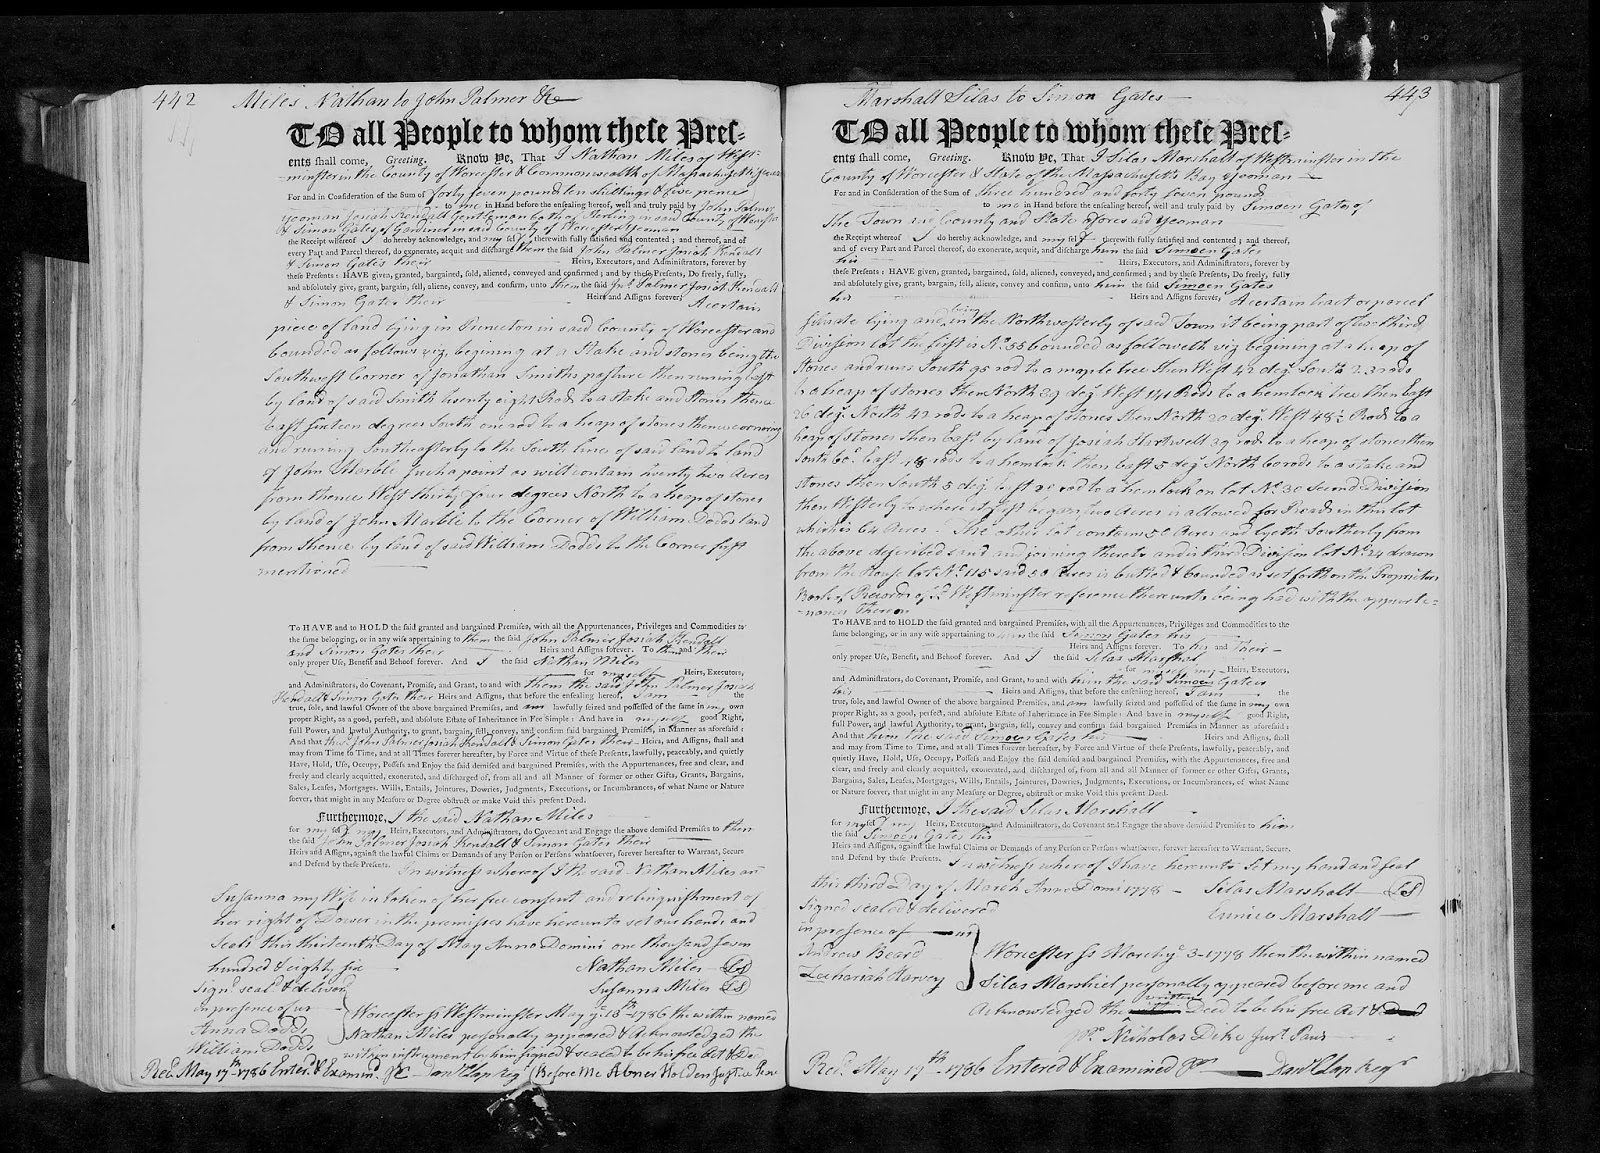 442 Miles Nathan to John Palmer &c
TO all People to whom these Pres-
ents shall come, Greeting. Know Ye, That I Nathan Miles of West-
-minster in the County of Worcester & Commonwealth of Massachusetts
For and in Consideration of the Sum of forty seven pounds ten shillings & five pence
to me in Hand before the ensealing hereof, well and truly paid by John Palmer
yeoman Josiah Kendall Gentleman both of Sterling in said County of Worcester
& Simon Gates of Gardner in said County of Worcester yeoman
the Receipt whereof I do hereby acknowledge, and my self therewith fully satisfied and contented; and thereof, and of
every Part and Parcel thereof, do exonerate, acquit and discharge them the said John Palmer Josiah Kendall
& Simon Gates their Heirs, Executors, and Administrators, forever by
these Presents: HAVE given, granted, bargained, sold, aliened, conveyed and confirmed; and by these Presents, Do freely, fully,
and absolutely give, grant, bargain, sell, aliene, convey, and confirm, unto them the said Jno. Palmer Josiah Kendall
& Simon Gates their Heirs and Assigns forever, A certain
piece of land lying in Princeton in said County of Worcester and
bounded as follows viz, begining at a Stake and stones being the
Southwest Corner of Jonathan Smiths pasture then runing East
by land of said Smith twenty eight Rods to a stake and Stones thence
East sixteen degrees South one rod to a heap of stones thence
and running Southeasterly to the South line of said land to land
of John Marble Such a point as will contain twenty two Acres
from thence West thirty four degrees North to a heap of stones
by land of John Marble to the Corner of William Dodds land
from thence by land of said William Dodds to the Corner first
mentioned
To HAVE and to HOLD the said granted and bargained Premises, with all the Appurtenances, Privileges and Commodities to
the same belonging, or in any wise appertaining to them the said John Palmer Josiah Kendall
and Simon Gates their Heirs and Assigns forever. To them and their
only proper Use, Benefit and Behoof forever. And I the said Nathan Miles
for myself Heirs, Executors,
and Administrators, do Covenant, Promise, and Grant, to and with them the said John Palmer Josiah
Kendall & Simon Gates their Heirs and Assigns, that before the ensealing hereof, I am the
true, sole, and lawful Owner of the above bargained Premises, and am lawfully seized and possessed of the same in my own
proper Right, as a good, perfect, and absolute Estate of Inheritance in Fee Simple: And have in myself good Right,
full Power, and lawful Authority, to grant, bargain, sell, convey, and confirm said bargained Premises, in Manner as aforesaid:
And that the sd. John Palmer Josiah Kendall & Simon Gates their Heirs, and Assigns, shall and
may from Time to Time, and at all Times forever hereafter, by Force and Virtue of these Presents, lawfully, peaceably, and quietly
Have, Hold, Use, Occupy, Possess and Enjoy the said demised and bargained Premises, with the Appurtenances, free and clear, and
freely and clearly acquitted, exonerated, and discharged of, from all and all Manner of former or other Gifts, Grants, Bargains,
Sales, Leases, Mortgages, Wills, Entails, Jointures, Dowries, Judgments, Executions, or Incumbrances, of what Name or Nature
soever, that might in any Measure or Degree obstruct or make Void this present Deed.
Furthermore, I the said Nathan Miles
for my self & my Heirs, Executors, and Administrators, do Covenant and Engage the above demised Premises to them
the said John Palmer Josiah Kendall & Simon Gates their
Heirs and Assigns, against the lawful Claims or Demands of any Person or Persons whatsoever, forever hereafter to Warrant, Secure
and Defend by these Presents. In witness whereof I the said Nathan Miles and
Susanna my Wife in token of her free consent and relinquishment of
her right of Dower in the premisses have hereunto set our hands and
Seals this thirteenth Day of May Anno Domini one thousand seven
hundred & eighty six Nathan Miles LS
Signd. seald. & deliverd Susanna Miles LS
in presence of us
Anna Dodds
William Dodds
Worcester ss Westminster May ye 13th 1786 the within named
Nathan Miles personally appeared & Acknowledged the
within instrument by him signed & sealed to be his free Act & Deed
Before Me Abner Holden Justice Peace
Recd. May 17th 1786 Enterd. & Examind. pr Danl Clap Regr
Marshall Silas to Simon Gates 443
TO all People to whom these Pres-
ents shall come, Greeting. Know Ye, That I Silas Marshall of Westminster in the
County of Worcester & State of the Massachusetts Bay yeoman
For and in Consideration of the Sum of three hundred and forty seven pounds
to me in Hand before the ensealing hereof, well and truly paid by Simeon Gates of
the Town and County and State aforesaid yeoman
the Receipt whereof I do hereby acknowledge, and my self therewith fully satisfied and contented; and thereof,
and of every Part and Parcel thereof, do exonerate, acquit, and discharge him the said Simeon Gates
his Heirs, Executors, and Administrators, forever by
these Presents: HAVE given, granted, bargained, sold, aliened, conveyed and confirmed; and by these Presents, Do freely, fully
and absolutely give, grant, bargain, sell, aliene, convey and confirm, unto him the said Simeon Gates
his Heirs and Assigns forever, A certain tract or parcel
situate lying and being in the Northwesterly of said Town it being part of two third
Division lot the first is No. 55 bounded as followeth viz begining at a heap of
Stones and runs South 95 rod to a maple tree then West 42 deg. South 23 rods
to a heap of stones then North 39 deg. West 141 Rods to a hemlock tree then East
26 deg. North 42 rods to a heap of stones then North 20 deg. West 48½ Rods to a
heap of stones then East by land of Josiah Hartwell 29 rods to a heap of stones then
South 60. East 18 rods to a hemlock then East 5 deg. North 60 rods to a stake and
stones then South 5 deg. East 28 rod to a hemlock on lot No. 30 Second Division
then Westerly to where it first began two Acres is allowed for Roads in this lot
which is 64 Acres. The other lot contains 50 Acres and lyeth Southerly from
the above described land and joining thereto and is third Division lot No. 24 drawn
from the House lot No. 115 said 50 Acres is butted & bounded as set forth on the Proprietors
Book of Records of sd. Westminster reference thereunto being had with the appurte-
-nances thereon
To HAVE and to HOLD the said granted and bargained Premises, with all the Appurtenances, Privileges and Commodities to the
same belonging, or in any wise appertaining to him the said Simeon Gates his
Heirs and Assigns forever. To his and their
only proper Use, Benefit, and Behoof forever. And I the said Silas Marshal
for myself my Heirs, Executors,
and Administrators, do Covenant, Promise, and Grant, to and with him the said Simeon Gates
his Heirs and Assigns, that before the ensealing hereof, I am the
true, sole, and lawful Owner of the above bargained Premises, and am lawfully seized and possessed of the same in my own
proper Right, as a good, perfect, and absolute Estate of Inheritance in Fee Simple: And have in myself good Right,
full Power, and lawful Authority, to grant, bargain, sell, convey and confirm said bargained Premises, in Manner as aforesaid:
And that him the said Simeon Gates his Heirs and Assigns, shall
and may from Time to Time, and at all Times forever hereafter, by Force and Virtue of these Presents, lawfully, peaceably, and
quietly Have, Hold, Use, Occupy, Possess and Enjoy the said demised and bargained Premises, with the Appurtenances, free and
clear, and freely and clearly acquitted, exonerated, and discharged of, from all and all Manner of former or other Gifts, Grants,
Bargains, Sales, Leases, Mortgages, Wills, Entails, Jointures, Dowries, Judgments, Executions, or Incumbrances, of what Name
or Nature soever, that might in any Measure or Degree obstruct or make Void this present Deed.
Furthermore, I the said Silas Marshall
for myself my Heirs, Executors and Administrators, do Covenant and Engage the above demised Premises to him
the said Simeon Gates his
Heirs and Assigns, against the lawful Claims or Demands of any Person or Persons whatsoever, forever hereafter to Warrant, Secure,
and Defend by these Presents. In witness whereof I have hereunto Set my hand and seal
this third Day of March Anno Domi 1778 Silas Marshall LS
Signed sealed & delivered Eunice Marshall
in presence of us
Andrew Beard
Zachariah Harvey
Worcester ss March ye 3 1778 then the within named
Silas Marshiel personally appeared before me and
Acknowledged the written Deed to be his free Act & Deed
pr. Nicholas Dike Just. Pacis
Recd. May 17th. 1786 Entered & Examined pr Danl Clap Regr